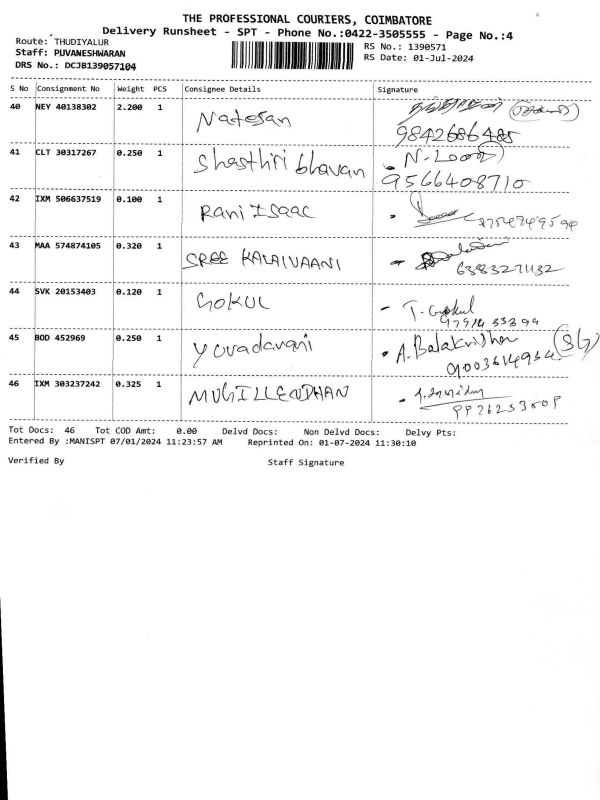 THE PROFESSIONAL COURIERS, COIMBATORE
Delivery Runsheet - SPT - Phone No.:0422-3505555 - Page No.:4
Route: THUDIYALUR
RS No.: 1390571
Staff: PUVANESHWARAN
RS Date: 01-Jul-2024
DRS No.: DCJB139057104
S No Consignment No Weight PCS Consignee Details Signature
40 NEY 40138302 2.200 1 Natesan
9842686485
41 CLT 30317267 0.250 1 Shasthiri bhavan
9566408710
42 IXM 506637519 0.100 1 Rani Isaac
43 MAA 574874105 0.320 1 SREE KALAIVAANI
6383271132
44 SVK 20153403 0.120 1 GOKUL T. Gokul
45 BOD 452969 0.250 1 Yuvadarani A. Balakrishnan
46 IXM 303237242 0.325 1 MUGILLENDHAN
Tot Docs: 46 Tot COD Amt: 0.00 Delvd Docs: Non Delvd Docs: Delvy Pts:
Entered By :MANISPT 07/01/2024 11:23:57 AM Reprinted On: 01-07-2024 11:30:10
Verified By Staff Signature